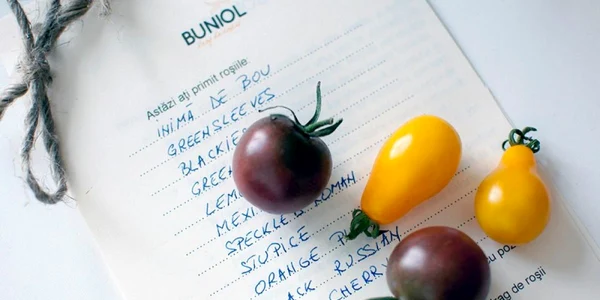 BUNIOL
Astăzi ați primit roșiile
INIMĂ DE BOU
GREENSLEEVES
BLACKIE
GREE
LEM
MEXI
SPECKLED ROMAN
STUPICE
ORANGE
RUSSIAN
CHERRY
cu poz
ag de roșii